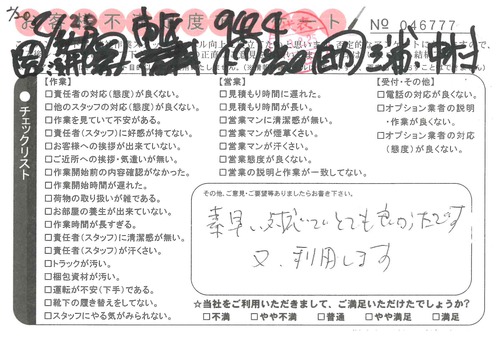 お客様不満足度アンケート
№ 046777
チェックリスト
【作業】
□責任者の対応(態度)が良くない。
□他のスタッフの対応(態度)が良くない。
□作業を見ていて不安がある。
□責任者(スタッフ)に好感が持てない。
□お客様への挨拶が出来ていない。
□ご近所への挨拶・気遣いが無い。
□作業開始前の内容確認がなかった。
□作業開始時間が遅れた。
□荷物の取り扱いが雑である。
□お部屋の養生が出来ていない。
□作業時間が長すぎる。
□責任者(スタッフ)に清潔感が無い。
□責任者(スタッフ)が汗くさい。
□トラックが汚い。
□梱包資材が汚い。
□運転が不安(下手)である。
□靴下の履き替えをしてない。
□スタッフにやる気がみられない。
【営業】
□見積もり時間に遅れた。
□見積もり時間が長い。
□営業マンに清潔感が無い。
□営業マンが煙草くさい。
□営業マンが汗くさい。
□営業態度が良くない。
□営業の説明と作業が一致してない。
【受付・その他】
□電話の対応が良くない。
□オプション業者の説明
・作業が良くない。
□オプション業者の対応
(態度)が良くない。
その他、ご意見・ご要望等ありましたらお書き下さい。
素早い対応でとても良かったです
又、利用します
☆当社をご利用いただきまして、ご満足いただけたでしょうか?
□不満 □やや不満 □普通 □やや満足 □満足